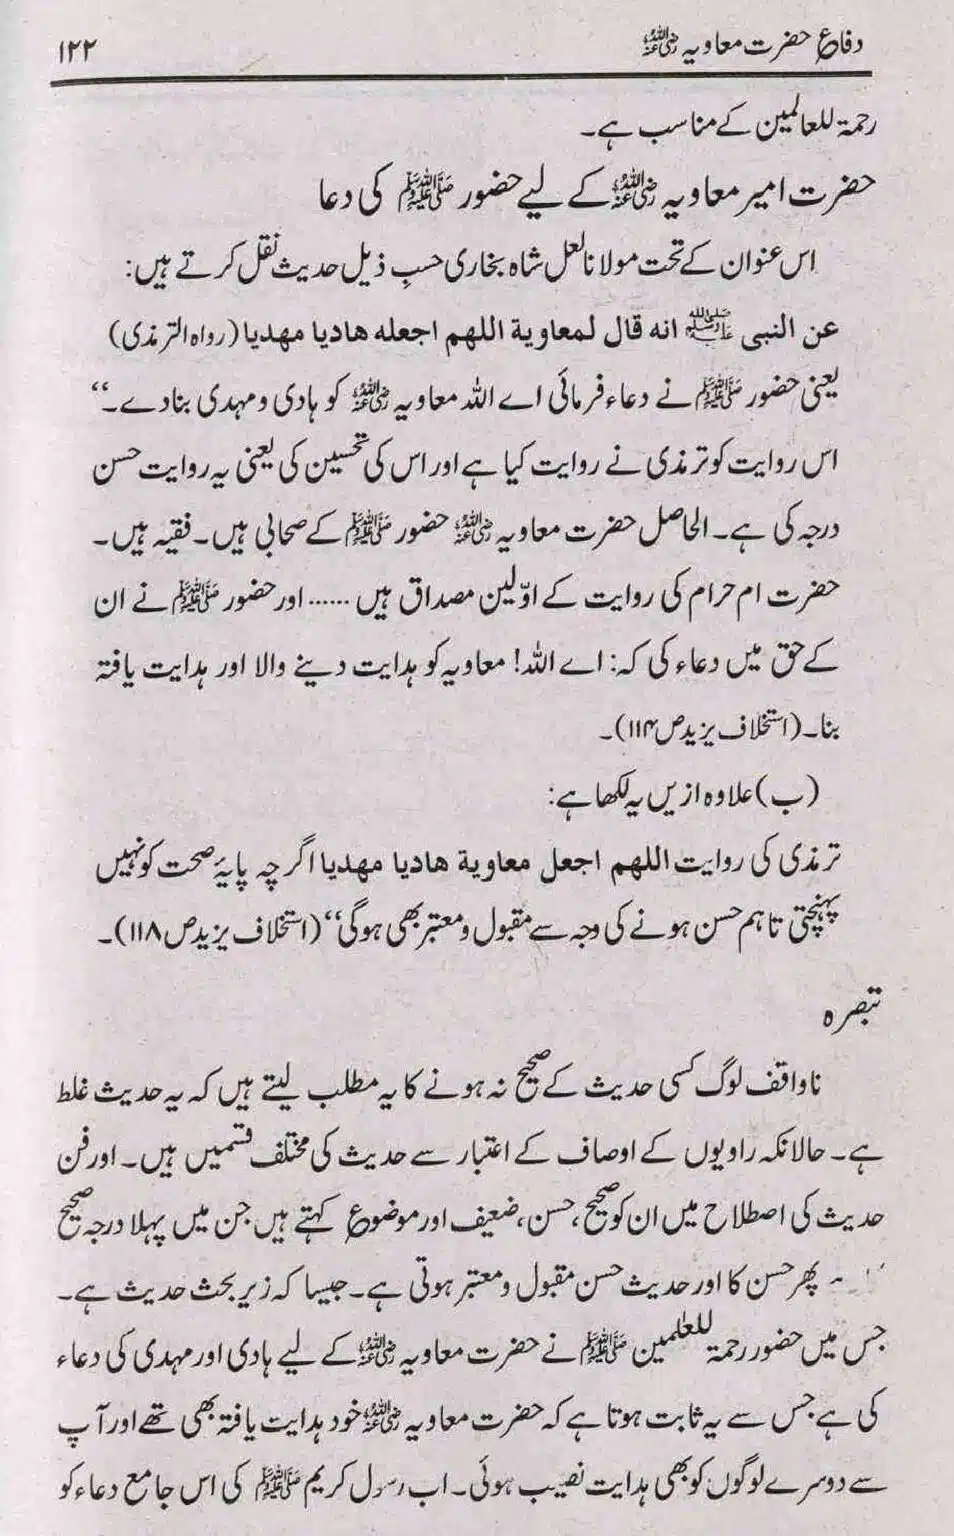 دفاع حضرت معاویہ رضی اللہ عنہ ۱۲۲
رحمۃ للعالمین کے مناسب ہے۔
حضرت امیر معاویہ رضی اللہ عنہ کے لیے حضور صلی اللہ علیہ وسلم کی دعا
اس عنوان کے تحت مولانا لعل شاہ بخاری حسبِ ذیل حدیث نقل کرتے ہیں:
عن النبی صلی اللہ علیہ وسلم انه قال لمعاویة اللهم اجعله هادیا مهدیا (رواہ الترمذی)
یعنی حضور صلی اللہ علیہ وسلم نے دعاء فرمائی اے اللہ معاویہ رضی اللہ عنہ کو ہادی و مہدی بنادے۔“
اس روایت کو ترمذی نے روایت کیا ہے اور اس کی تحسین کی یعنی یہ روایت حسن
درجہ کی ہے۔ الحاصل حضرت معاویہ رضی اللہ عنہ حضور صلی اللہ علیہ وسلم کے صحابی ہیں۔ فقیہ ہیں۔
حضرت ام حرام کی روایت کے اوّلین مصداق ہیں ...... اور حضور صلی اللہ علیہ وسلم نے ان
کے حق میں دعاء کی کہ: اے اللہ! معاویہ کو ہدایت دینے والا اور ہدایت یافتہ
بنا۔ (استخلاف یزید ص ۱۱۴)۔
(ب) علاوہ ازیں یہ لکھا ہے:
ترمذی کی روایت اللهم اجعل معاویة هادیا مهدیا اگرچہ پایۂ صحت کو نہیں
پہنچتی تاہم حسن ہونے کی وجہ سے مقبول و معتبر بھی ہوگی“ (استخلاف یزید ص ۱۱۸)۔
تبصرہ
ناواقف لوگ کسی حدیث کے صحیح نہ ہونے کا یہ مطلب لیتے ہیں کہ یہ حدیث غلط
ہے۔ حالانکہ راویوں کے اوصاف کے اعتبار سے حدیث کی مختلف قسمیں ہیں۔ اور فن
حدیث کی اصطلاح میں ان کو صحیح، حسن، ضعیف اور موضوع کہتے ہیں جن میں پہلا درجہ صحیح
پھر حسن کا اور حدیث حسن مقبول و معتبر ہوتی ہے۔ جیسا کہ زیر بحث حدیث ہے۔
جس میں حضور رحمۃ للعٰلمین صلی اللہ علیہ وسلم نے حضرت معاویہ رضی اللہ عنہ کے لیے ہادی اور مہدی کی دعاء
کی ہے جس سے یہ ثابت ہوتا ہے کہ حضرت معاویہ رضی اللہ عنہ خود ہدایت یافتہ بھی تھے اور آپ
سے دوسرے لوگوں کو بھی ہدایت نصیب ہوئی۔ اب رسول کریم صلی اللہ علیہ وسلم کی اس جامع دعاء کو